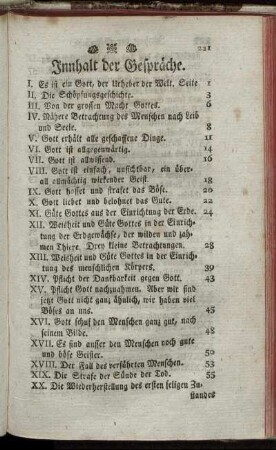 221
Innhalt der Gespräche.
I. Es ist ein Gott, der Urheber der Welt. Seite 1
II. Die Schöpfungsgeschichte. 3
III. Von der grossen Macht Gottes. 6
IV. Nähere Betrachtung des Menschen nach Leib
und Seele. 8
V. Gott erhält alle geschaffene Dinge. 11
VI. Gott ist allgegenwärtig. 14
VII. Gott ist allwissend. 16
VIII. Gott ist einfach, unsichtbar, ein über-
all allmächtig wirkender Geist. 18
IX. Gott hasset und strafet das Böse. 20
X. Gott liebet und belohnet das Gute. 22
XI. Güte Gottes aus der Einrichtung der Erde. 24
XII. Weisheit und Güte Gottes in der Einrich-
tung der Erdgewächse, der wilden und zah-
men Thiere. Drey kleine Betrachtungen. 28
XIII. Weisheit und Güte Gottes in der Einrich-
tung des menschlichen Körpers. 39
XIV. Pflicht der Dankbarkeit gegen Gott. 43
XV. Pflicht Gott nachzuahmen. Aber wir sind
jetzt Gott nicht ganz ähnlich, wir haben viel
Böses an uns. 45
XVI. Gott schuf den Menschen ganz gut, nach
seinem Bilde. 48
XVII. Es sind ausser den Menschen noch gute
und böse Geister. 50
XVIII. Der Fall des verführten Menschen. 53
XIX. Die Strafe der Sünde der Tod. 55
XX. Die Wiederherstellung des ersten seligen Zu-
standes